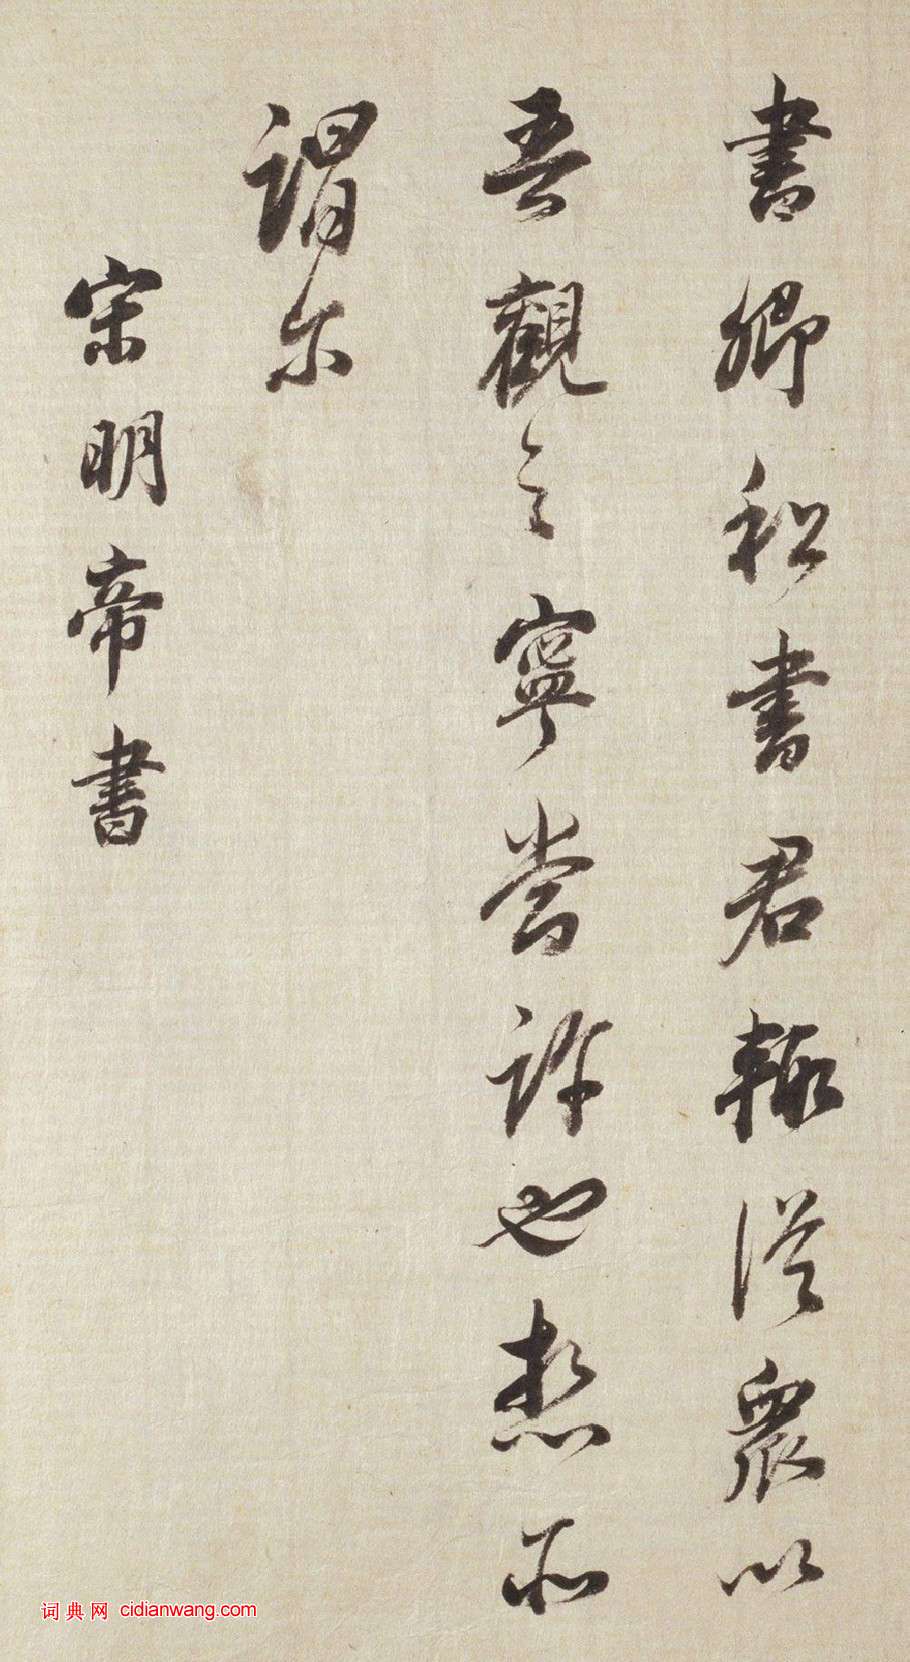 書卿書君輒從衆以
吾觀之寧嘗許也所
謂尔
宋明帝書
词典网 cidianwang.com